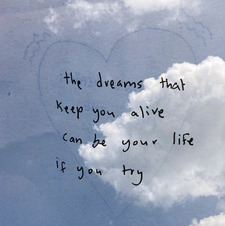 the dreams that
keep you alive
can be your life
if you try